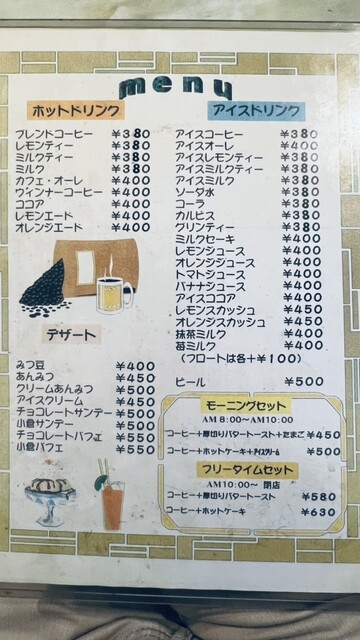 menu
ホットドリンク
ブレンドコーヒー ¥380
レモンティー ¥380
ミルクティー ¥380
ミルク ¥380
カフェ・オーレ ¥400
ウィンナーコーヒー ¥400
ココア ¥400
レモンエード ¥400
オレンジエード ¥400
デザート
みつ豆 ¥400
あんみつ ¥450
クリームあんみつ ¥500
アイスクリーム ¥450
チョコレートサンデー ¥500
小倉サンデー ¥500
チョコレートパフェ ¥550
小倉パフェ ¥550
アイスドリンク
アイスコーヒー ¥380
アイスオーレ ¥400
アイスレモンティー ¥380
アイスミルクティー ¥380
アイスミルク ¥380
ソーダ水 ¥380
コーラ ¥380
カルピス ¥380
グリンティー ¥380
ミルクセーキ ¥400
レモンジュース ¥400
オレンジジュース ¥400
トマトジュース ¥400
バナナジュース ¥400
アイスココア ¥400
レモンスカッシュ ¥450
オレンジスカッシュ ¥450
抹茶ミルク ¥400
苺ミルク ¥400
(フロートは各+¥100)
ビール ¥500
モーニングセット
AM8:00~AM10:00
コーヒー+厚切りバタートースト+たまご ¥450
コーヒー+ホットケーキ+アイスクリーム ¥500
フリータイムセット
AM10:00~ 閉店
コーヒー+厚切りバタートースト ¥580
コーヒー+ホットケーキ ¥630